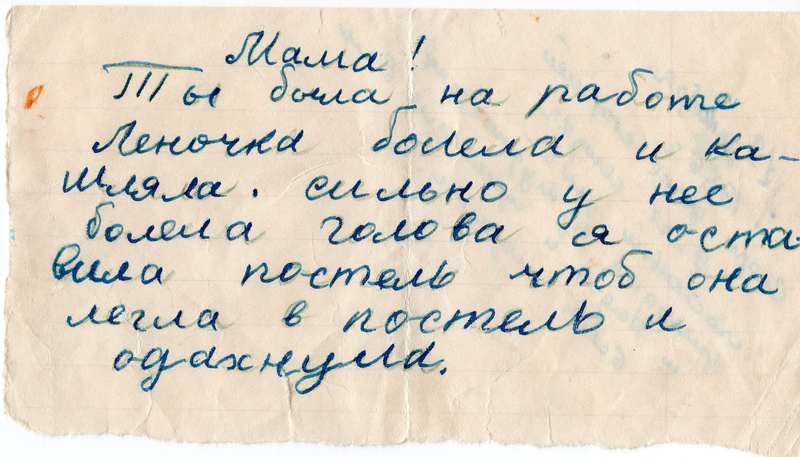 Мама!
Ты была на работе
Леночка болела и ка-
шляла. сильно у нее
болела голова я оста-
вила постель чтоб она
легла в постель и
одахнула.